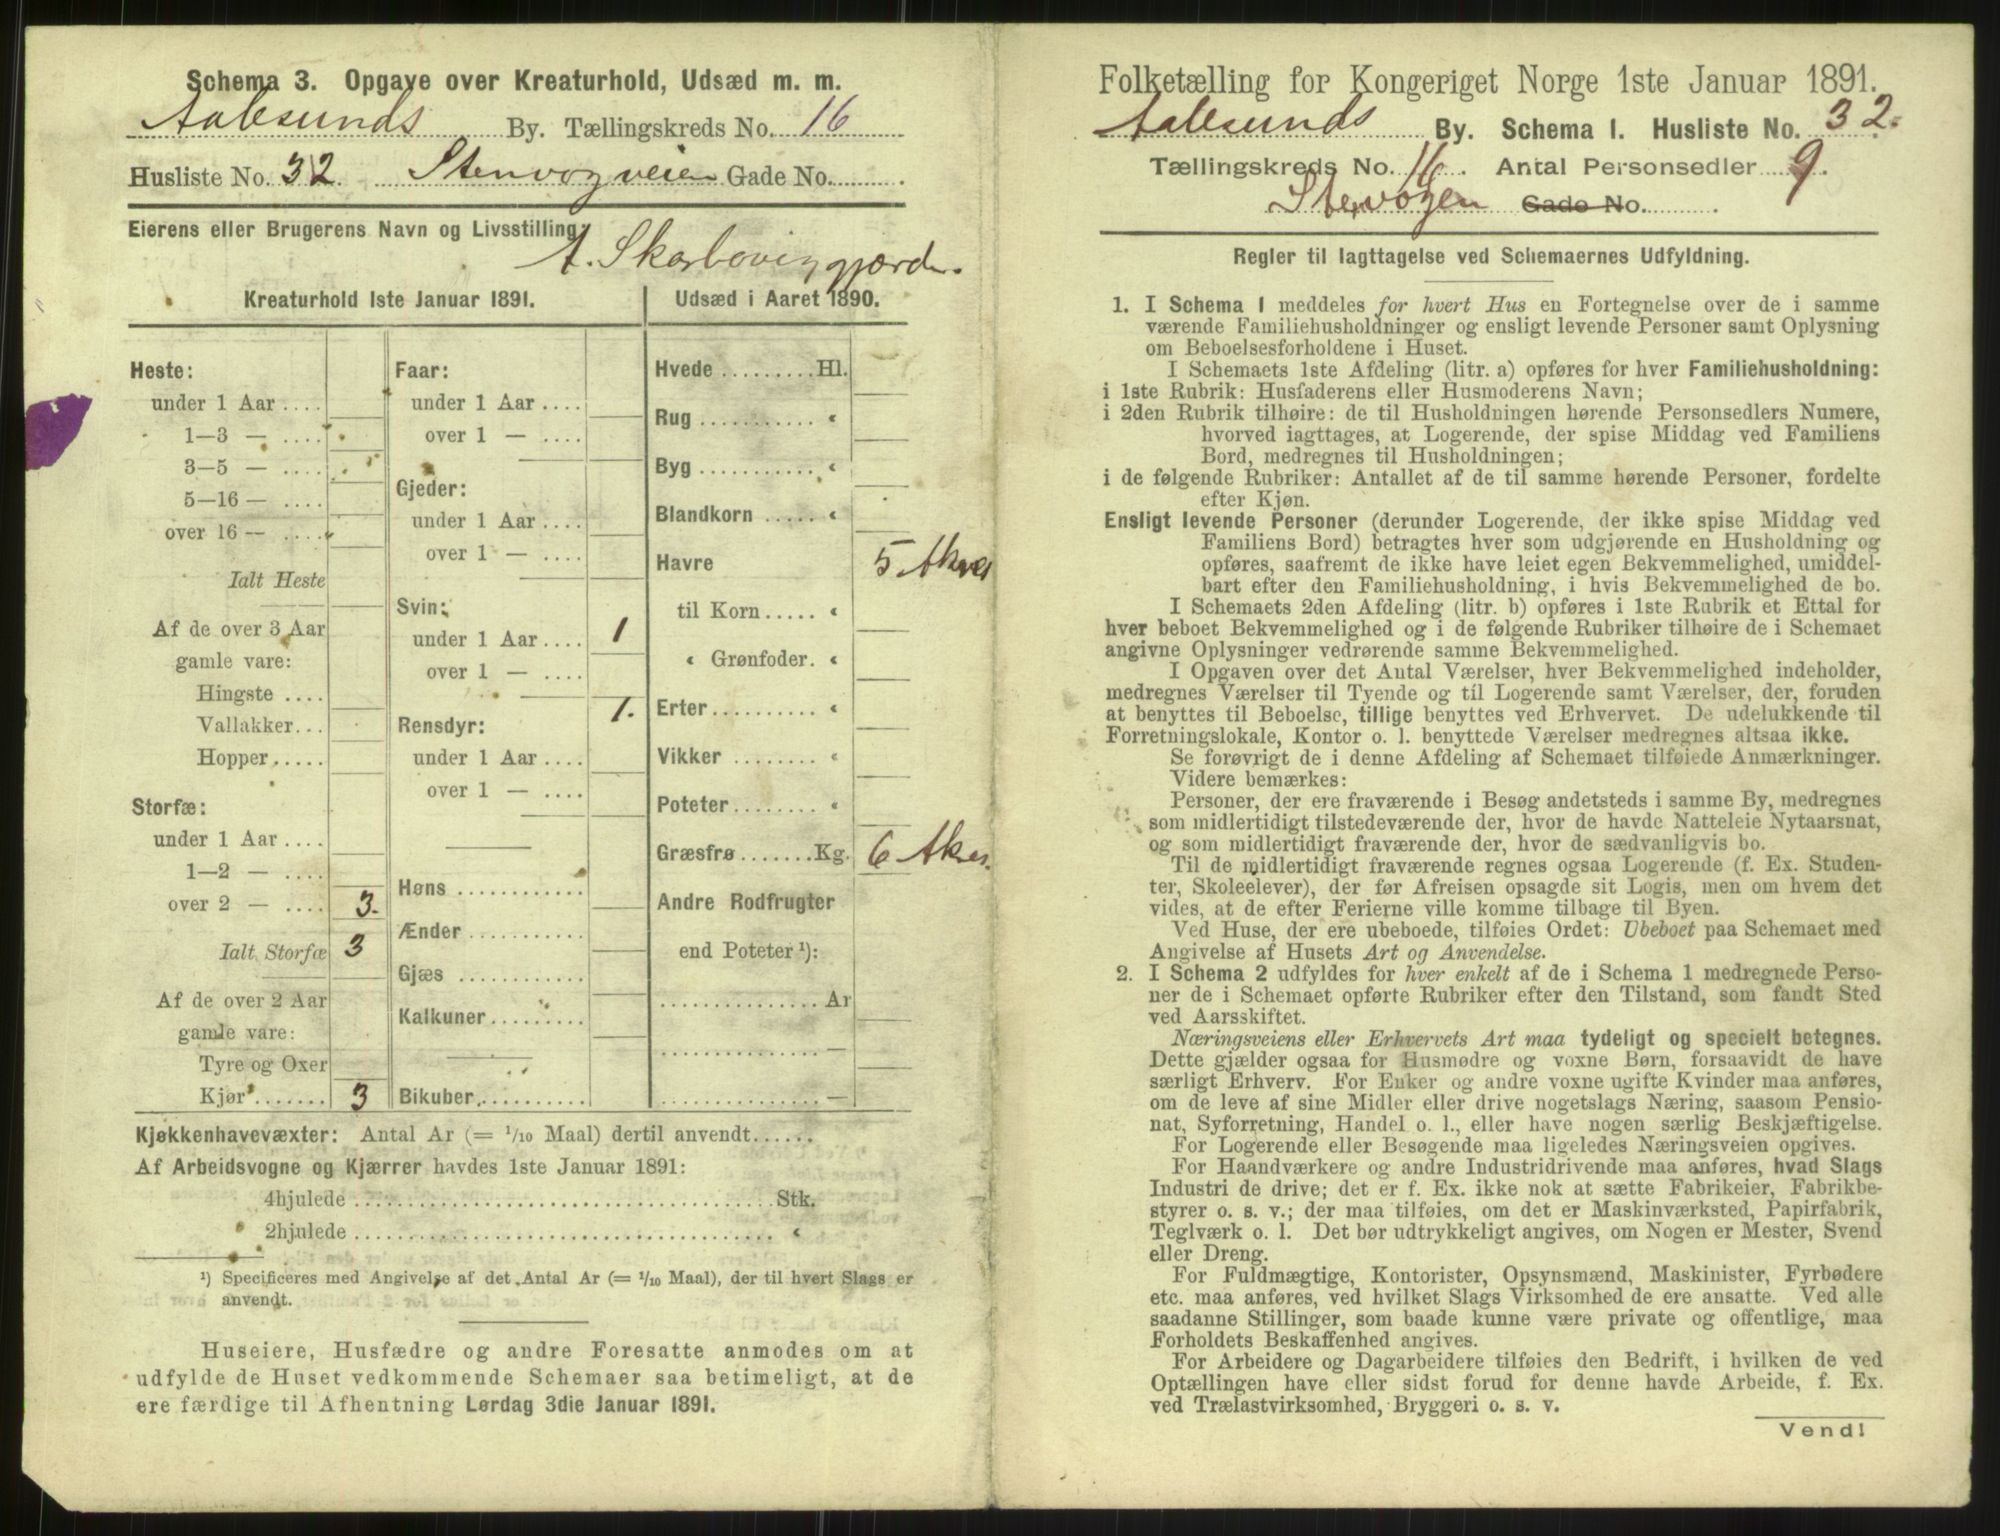 Schema 3. Opgave over Kreaturhold, Udsæd m. m.
Aalesunds By. Tællingskreds No. 16
Husliste No. 32. Stenvogveien Gade No.
Eierens eller Brugerens Navn og Livsstilling:
A. Skarbøvig gjærde.
Kreaturhold 1ste Januar 1891.
Heste:
under 1 Aar ....
1—3 — ....
3—5 — ....
5—16 — ....
over 16 — ....
Ialt Heste
Af de over 3 Aar
gamle vare:
Hingste ....
Vallakker...
Hopper.....
Storfæ:
under 1 Aar ....
1—2 — ....
over 2 — .... 3.
Ialt Storfæ 3
Af de over 2 Aar
gamle vare:
Tyre og Oxer
Kjør....... 3
Faar:
under 1 Aar ....
over 1 — ....
Gjeder:
under 1 Aar ....
over 1 — ....
Svin:
under 1 Aar .... 1
over 1 — ....
1.
Rensdyr:
under 1 Aar ....
over 1 — ....
Høns ............
Ænder ...........
Gjæs ............
Kalkuner.........
Bikuber..........
Udsæd i Aaret 1890.
Hvede .........Hl.
Rug ........... «
Byg ........... «
Blandkorn ..... «
Havre 5 Akres
til Korn..... «
« Grønfoder. «
Erter.......... «
Vikker ........ «
Poteter........ «
Græsfrø.......Kg. 6 Akres.
Andre Rodfrugter
end Poteter ¹):
...............Ar
............... —
............... —
Kjøkkenhavevæxter: Antal Ar (= 1/10 Maal) dertil anvendt......
Af Arbeidsvogne og Kjærrer havdes 1ste Januar 1891:
4hjulede ........................................Stk.
2hjulede ........................................ «
¹) Specificeres med Angivelse af det Antal Ar (= 1/10 Maal), der til hvert Slags er
anvendt.
Huseiere, Husfædre og andre Foresatte anmodes om at
udfylde de Huset vedkommende Schemaer saa betimeligt, at de
ere færdige til Afhentning Lørdag 3die Januar 1891.
Folketælling for Kongeriget Norge 1ste Januar 1891.
Aalesunds By. Schema 1. Husliste No. 32.
Tællingskreds No. 16. Antal Personsedler 9.
Stenvogen Gade No.
Regler til Iagttagelse ved Schemaernes Udfyldning.
1. I Schema 1 meddeles for hvert Hus en Fortegnelse over de i samme
værende Familiehusholdninger og ensligt levende Personer samt Oplysning
om Beboelsesforholdene i Huset.
I Schemaets 1ste Afdeling (litr. a) opføres for hver Familiehusholdning:
i 1ste Rubrik: Husfaderens eller Husmoderens Navn;
i 2den Rubrik tilhøire: de til Husholdningen hørende Personsedlers Numere,
hvorved iagttages, at Logerende, der spise Middag ved Familiens
Bord, medregnes til Husholdningen;
i de følgende Rubriker: Antallet af de til samme hørende Personer, fordelte
efter Kjøn.
Ensligt levende Personer (derunder Logerende, der ikke spise Middag ved
Familiens Bord) betragtes hver som udgjørende en Husholdning og
opføres, saafremt de ikke have leiet egen Bekvemmelighed, umiddel-
bart efter den Familiehusholdning, i hvis Bekvemmelighed de bo.
I Schemaets 2den Afdeling (litr. b) opføres i 1ste Rubrik et Ettal for
hver beboet Bekvemmelighed og i de følgende Rubriker tilhøire de i Schemaet
angivne Oplysninger vedrørende samme Bekvemmelighed.
I Opgaven over det Antal Værelser, hver Bekvemmelighed indeholder,
medregnes Værelser til Tyende og til Logerende samt Værelser, der, foruden
at benyttes til Beboelse, tillige benyttes ved Erhvervet. De udelukkende til
Forretningslokale, Kontor o. l. benyttede Værelser medregnes altsaa ikke.
Se forøvrigt de i denne Afdeling af Schemaet tilføiede Anmærkninger.
Videre bemærkes:
Personer, der ere fraværende i Besøg andetsteds i samme By, medregnes
som midlertidigt tilstedeværende der, hvor de havde Natteleie Nytaarsnat,
og som midlertidigt fraværende der, hvor de sædvanligvis bo.
Til de midlertidigt fraværende regnes ogsaa Logerende (f. Ex. Studen-
ter, Skoleelever), der før Afreisen opsagde sit Logis, men om hvem det
vides, at de efter Ferierne ville komme tilbage til Byen.
Ved Huse, der ere ubeboede, tilføies Ordet: Ubeboet paa Schemaet med
Angivelse af Husets Art og Anvendelse.
2. I Schema 2 udfyldes for hver enkelt af de i Schema 1 medregnede Perso-
ner de i Schemaet opførte Rubriker efter den Tilstand, som fandt Sted
ved Aarsskiftet.
Næringsveiens eller Erhvervets Art maa tydeligt og specielt betegnes.
Dette gjælder ogsaa for Husmødre og voxne Børn, forsaavidt de have
særligt Erhverv. For Enker og andre voxne ugifte Kvinder maa anføres,
om de leve af sine Midler eller drive nogetslags Næring, saasom Pensio-
nat, Syforretning, Handel o. l., eller have nogen særlig Beskjæftigelse.
For Logerende eller Besøgende maa ligeledes Næringsveien opgives.
For Haandværkere og andre Industridrivende maa anføres, hvad Slags
Industri de drive; det er f. Ex. ikke nok at sætte Fabrikeier, Fabrikbe-
styrer o. s. v.; der maa tilføies, om det er Maskinværksted, Papirfabrik,
Teglværk o. l. Det bør udtrykkeligt angives, om Nogen er Mester, Svend
eller Dreng.
For Fuldmægtige, Kontorister, Opsynsmænd, Maskinister, Fyrbødere
etc. maa anføres, ved hvilket Slags Virksomhed de ere ansatte. Ved alle
saadanne Stillinger, som baade kunne være private og offentlige, maa
Forholdets Beskaffenhed angives.
For Arbeidere og Dagarbeidere tilføies den Bedrift, i hvilken de ved
Optællingen have eller sidst forud for denne havde Arbeide, f. Ex.
ved Trælastvirksomhed, Bryggeri o. s. v.
Vend!